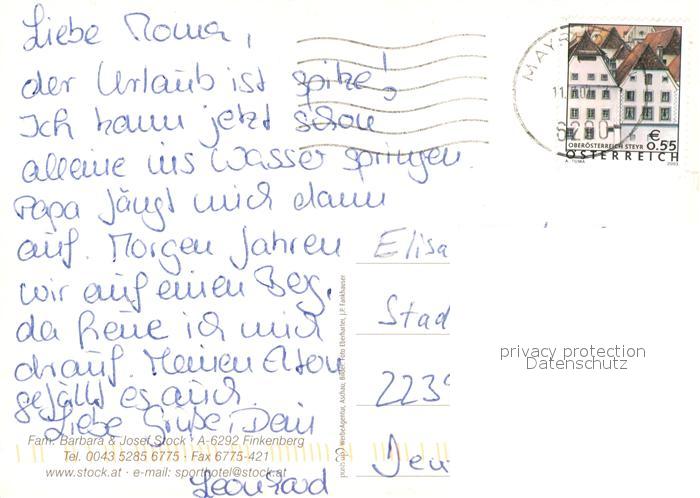 Liebe Moma,
der Urlaub ist spitze!
Ich kann jetzt schon
alleine ins Wasser springen.
Papa fängt mich dann
auf. Morgen fahren
wir auf einen Berg,
da freue ich mich
drauf. Meinen Eltern
gefällt es auch.
Liebe Grüße, Dein
Leonhard
Fam. Barbara & Josef Stock · A-6292 Finkenberg
Tel. 0043 5285 6775 · Fax 6775-421
www.stock.at · e-mail: sporthotel@stock.at
WerbeAgentur, Aschau, Bilder: Foto Eberharter, J.P. Fankhauser
Elisa
Stad
223
MAY
11.
6290
OBERÖSTERREICH STEYR
€ 0.55
ÖSTERREICH
A. TUMA 2003
privacy protection
Datenschutz